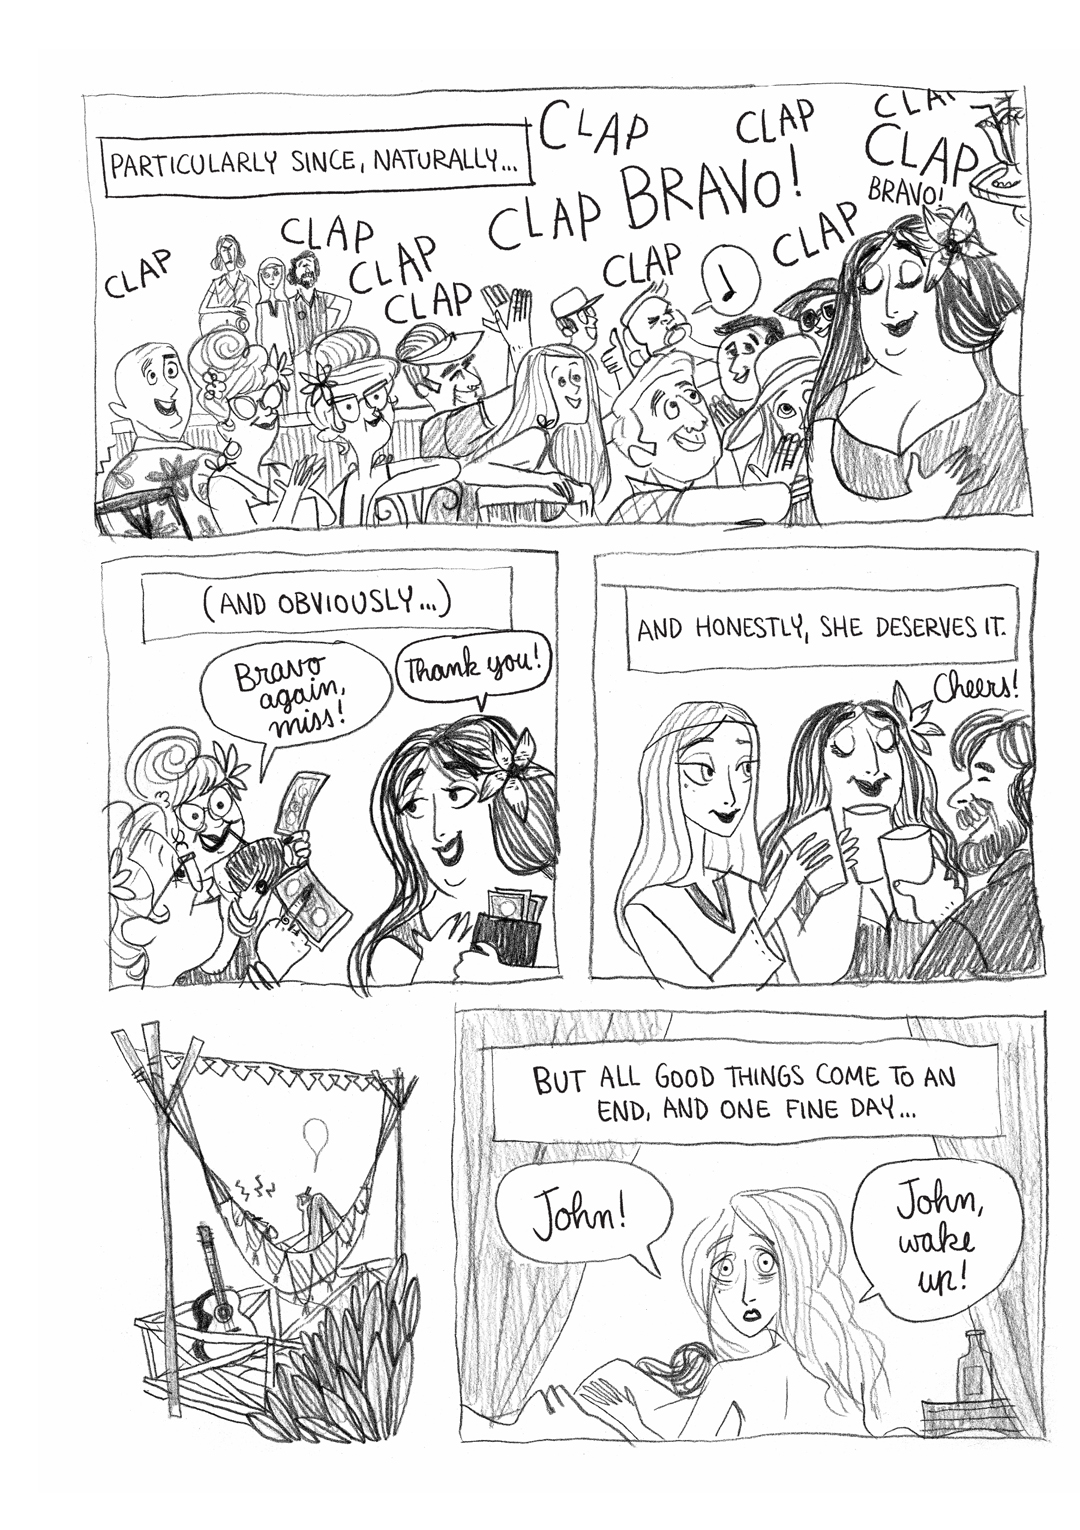 PARTICULARLY SINCE, NATURALLY...
CLAP
CLAP
CLAP
CLAP
BRAVO!
CLAP
BRAVO!
CLAP
CLAP
CLAP
CLAP
CLAP
CLAP
(AND OBVIOUSLY...)
Bravo
again,
miss!
Thank you!
AND HONESTLY, SHE DESERVES IT.
Cheers!
BUT ALL GOOD THINGS COME TO AN
END, AND ONE FINE DAY...
John!
John,
wake
up!